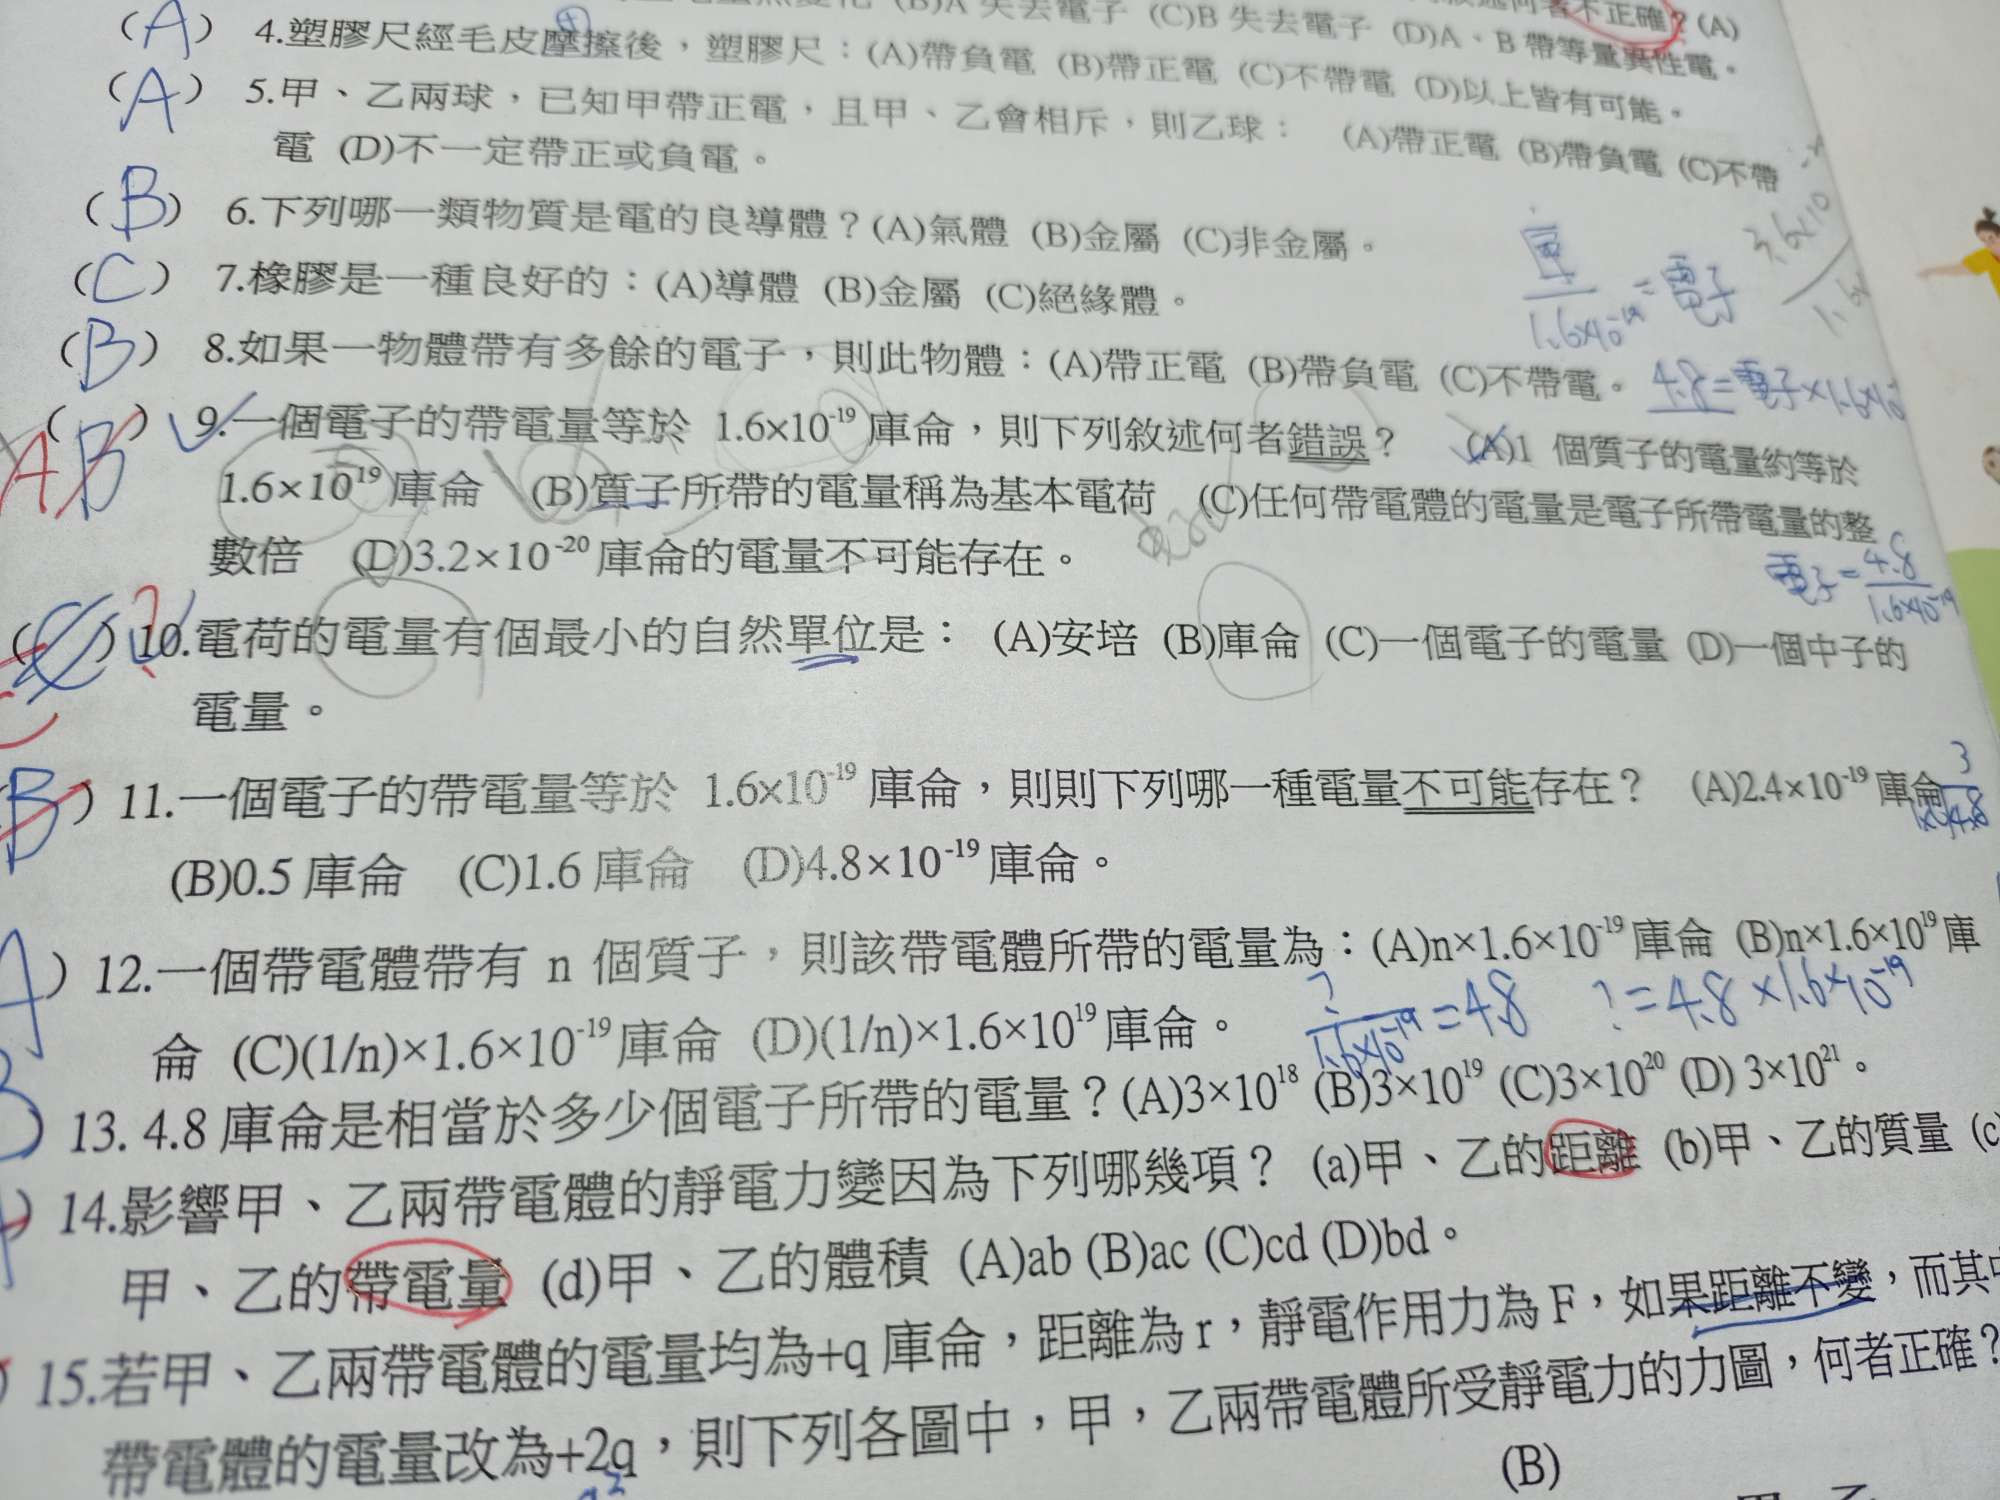 不正確?(A)
(B)A 失去電子 (C)B 失去電子 (D)A、B 帶等量異性電。
(A) 4.塑膠尺經毛皮摩擦後,塑膠尺:(A)帶負電 (B)帶正電 (C)不帶電 (D)以上皆有可能。
(A) 5.甲、乙兩球,已知甲帶正電,且甲、乙會相斥,則乙球: (A)帶正電 (B)帶負電 (C)不帶
電 (D)不一定帶正或負電。
(B) 6.下列哪一類物質是電的良導體?(A)氣體 (B)金屬 (C)非金屬。
(C) 7.橡膠是一種良好的:(A)導體 (B)金屬 (C)絕緣體。
庫/1.6×10⁻¹⁹=電子
(B) 8.如果一物體帶有多餘的電子,則此物體:(A)帶正電 (B)帶負電 (C)不帶電。
4.8=電子×1.6×10
AB ( ) 9.一個電子的帶電量等於 1.6×10⁻¹⁹ 庫侖,則下列敘述何者錯誤? (A)1 個質子的電量約等於
1.6×10¹⁹ 庫侖 (B)質子所帶的電量稱為基本電荷 (C)任何帶電體的電量是電子所帶電量的整
數倍 (D)3.2×10⁻²⁰ 庫侖的電量不可能存在。
電子=4.8/1.6×10⁻¹⁹
( ) 10.電荷的電量有個最小的自然單位是: (A)安培 (B)庫侖 (C)一個電子的電量 (D)一個中子的
電量。
B) 11.一個電子的帶電量等於 1.6×10⁻¹⁹ 庫侖,則則下列哪一種電量不可能存在? (A)2.4×10⁻¹⁹ 庫侖
(B)0.5 庫侖 (C)1.6 庫侖 (D)4.8×10⁻¹⁹ 庫侖。
A) 12.一個帶電體帶有 n 個質子,則該帶電體所帶的電量為:(A)n×1.6×10⁻¹⁹ 庫侖 (B)n×1.6×10¹⁹ 庫
侖 (C)(1/n)×1.6×10⁻¹⁹ 庫侖 (D)(1/n)×1.6×10¹⁹ 庫侖。
?/1.6×10⁻¹⁹=4.8 ?=4.8×1.6×10⁻¹⁹
B) 13. 4.8 庫侖是相當於多少個電子所帶的電量?(A)3×10¹⁸ (B)3×10¹⁹ (C)3×10²⁰ (D) 3×10²¹。
) 14.影響甲、乙兩帶電體的靜電力變因為下列哪幾項? (a)甲、乙的距離 (b)甲、乙的質量 (c
甲、乙的帶電量 (d)甲、乙的體積 (A)ab (B)ac (C)cd (D)bd。
) 15.若甲、乙兩帶電體的電量均為+q 庫侖,距離為 r,靜電作用力為 F,如果距離不變,而其中
帶電體的電量改為+2q,則下列各圖中,甲,乙兩帶電體所受靜電力的力圖,何者正確?
(B)